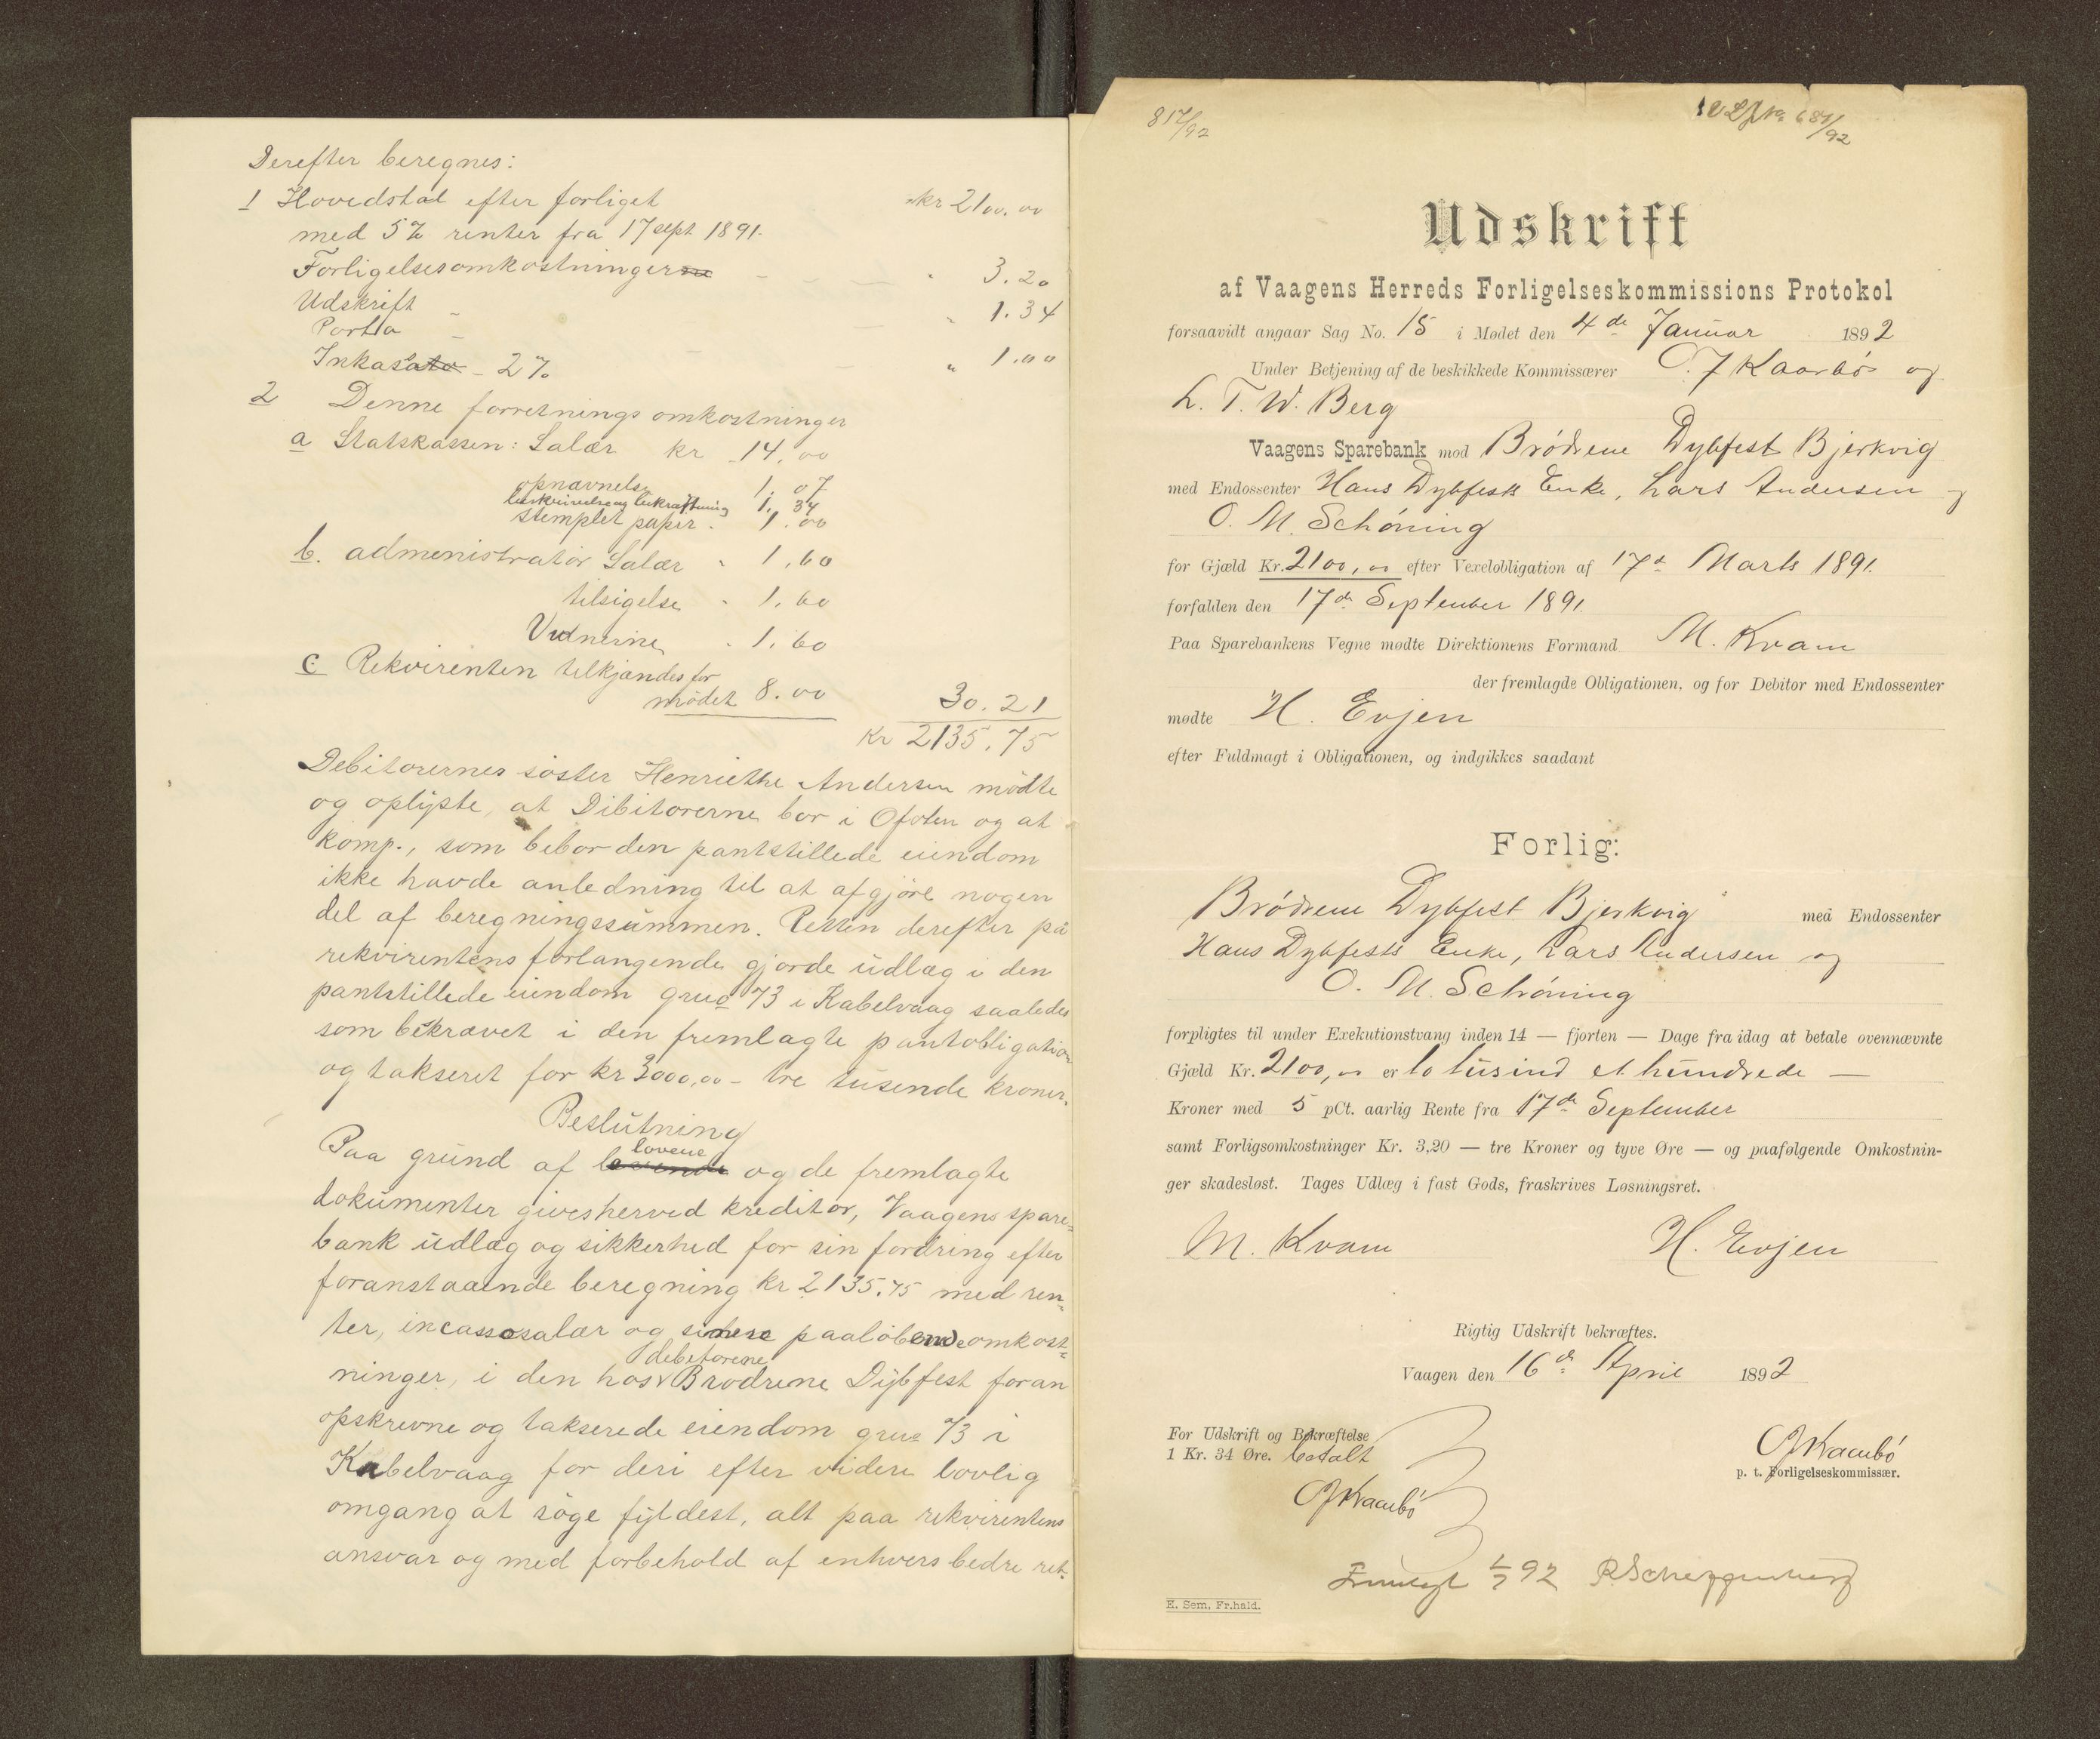 Derefter beregnes:
1 Hovedstol efter forliget kr 2100.00
med 5% renter fra 17 sept 1891.
Forligelsesomkostninger - " 3.20
Udskrift - " 1.34
Porto - " 1.00
Inkasso - 2%
2 Denne forretnings omkostninger
a Statskassen: Salær kr 14.00
opnævnelse 1.07
beskrivelse og bekræftning 1.34
stemplet papir. 1.00
b. administrator Salær " 1.60
tilsigelse " 1.60
Vidnerne " 1.60
c Rekvirenten tilkjendes for
mødet 8.00 30.21
kr 2135.75
Debitorernes søster Henriethe Andersen mødte
og oplyste, at Debitorerne bor i Ofoten og at
komp., som bebor den pantstillede eiendom
ikke havde anledning til at afgjøre nogen
del af beregningssummen. Retten derefter på
rekvirentens forlangende gjorde udlæg i den
pantstillede eiendom grud 73 i Kabelvaag saaledes
som bekrævet i den fremlagte pantobligation
og takseret for kr 3000,00 - tre tusende kroner.
Beslutning
Paa grund af lovene og de fremlagte
dokumenter gives herved kreditor, Vaagens spare-
bank udlæg og sikkerhed for sin fordring efter
foranstaaende beregning kr 2135.75 med ren-
ter, incassosalær og senere paaløbende omkost-
ninger, i den hos debitorerne Brødrene Dybfest foran
opskrevne og takserede eiendom grud 73 i
Kabelvaag for deri efter videre lovlig
omgang at søge fyldest, alt paa rekvirentens
ansvar og med forbehold af enhvers bedre ret.
817/92
681/92
Udskrift
af Vaagens Herreds Forligelseskommissions Protokol
forsaavidt angaar Sag No. 15 i Mødet den 4de Januar 1892
Under Betjening af de beskikkede Kommissærer O. J Kaarbø og
L. T. W. Berg
Vaagens Sparebank mod Brødrene Dybfest Bjerkvig
med Endossenter Hans Dybfests Enke, Lars Andersen og
O. M. Schöning
for Gjæld Kr. 2100,00 efter Vexelobligation af 17de Marts 1891.
forfalden den 17de September 1891
Paa Sparebankens Vegne mødte Direktionens Formand M. Kvam
der fremlagde Obligationen, og for Debitor med Endossenter
mødte H. Evjen
efter Fuldmagt i Obligationen, og indgikkes saadant
Forlig:
Brødrene Dybfest Bjerkvig med Endossenter
Hans Dybfests Enke, Lars Andersen og
O. M. Schöning
forpligtes til under Exekutionstvang inden 14 — fjorten — Dage fra idag at betale ovennævnte
Gjæld Kr. 2100,00 er to tusind et hundrede —
Kroner med 5 pCt. aarlig Rente fra 17de September
samt Forligsomkostninger Kr. 3,20 — tre Kroner og tyve Øre — og paafølgende Omkostnin-
ger skadesløst. Tages Udlæg i fast Gods, fraskrives Løsningsret.
M. Kvam H. Evjen
Rigtig Udskrift bekræftes.
Vaagen den 16de April 1892
For Udskrift og Bekræftelse
1 Kr. 34 Øre. betalt
OJKaarbø
OJKaarbø
p. t. Forligelseskommissær.
Fremlagt 1/7 92
E. Sem, Fr.hald.